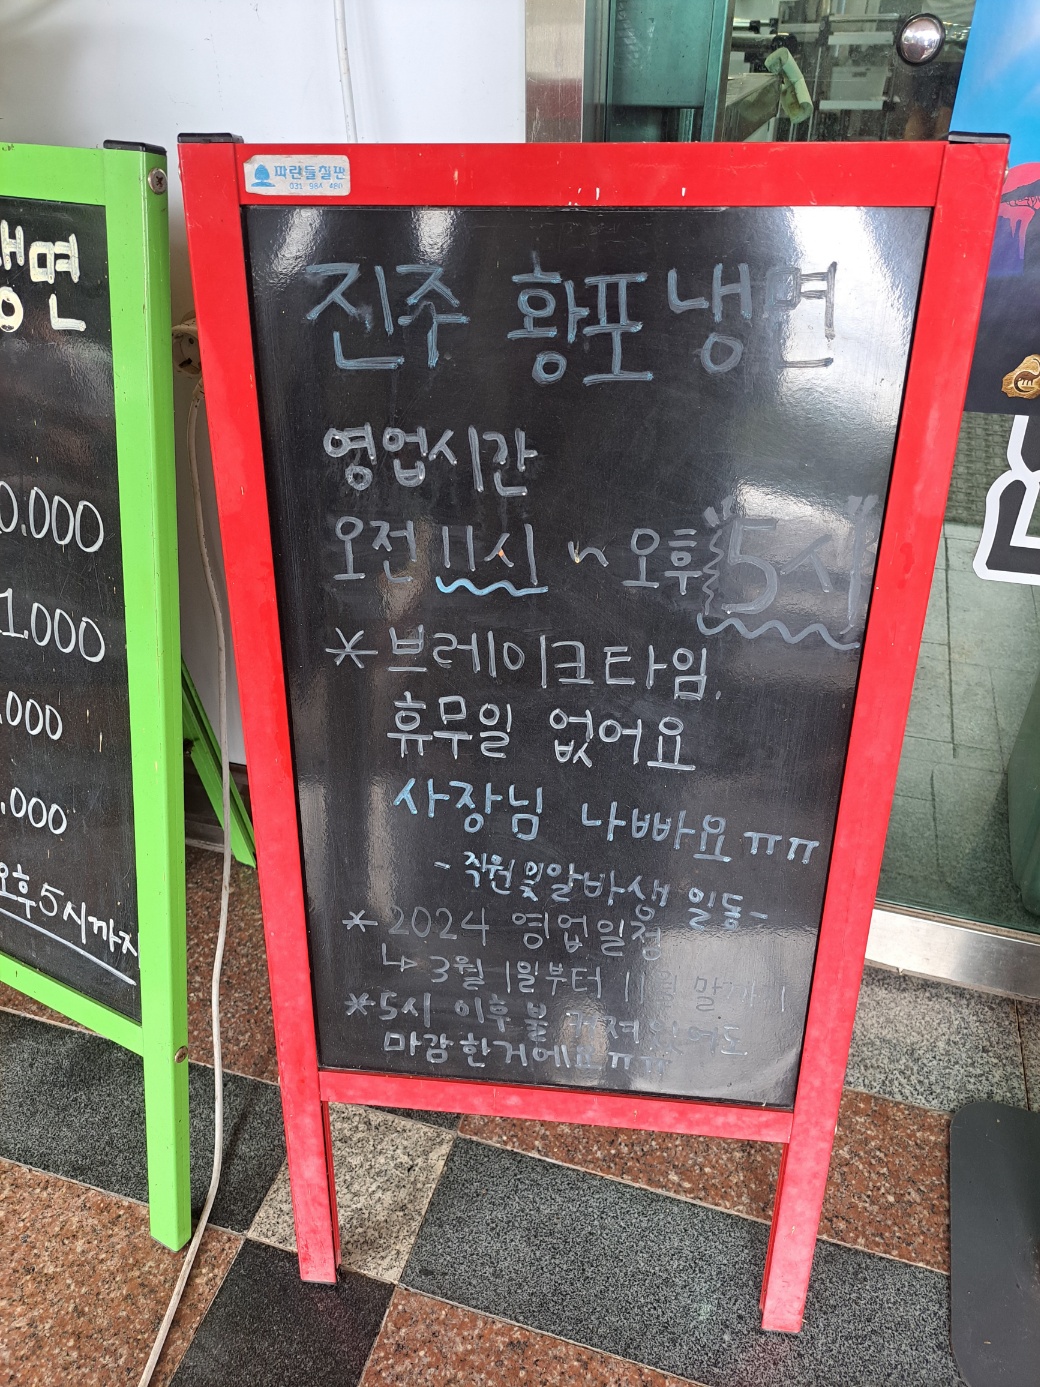 파란들칠판
031 984 480
진주 황포냉면
영업시간
오전 11시 ~ 오후 5시
* 브레이크타임.
휴무일 없어요
사장님 나빠요 ㅠㅠ
- 직원 및 알바생 일동 -
* 2024 영업일정
↳ 3월 1일부터 11월 말까지
* 5시 이후 불 켜져있어도
마감한거에요 ㅠㅠ
냉면
0.000
1.000
.000
.000
오후 5시까지